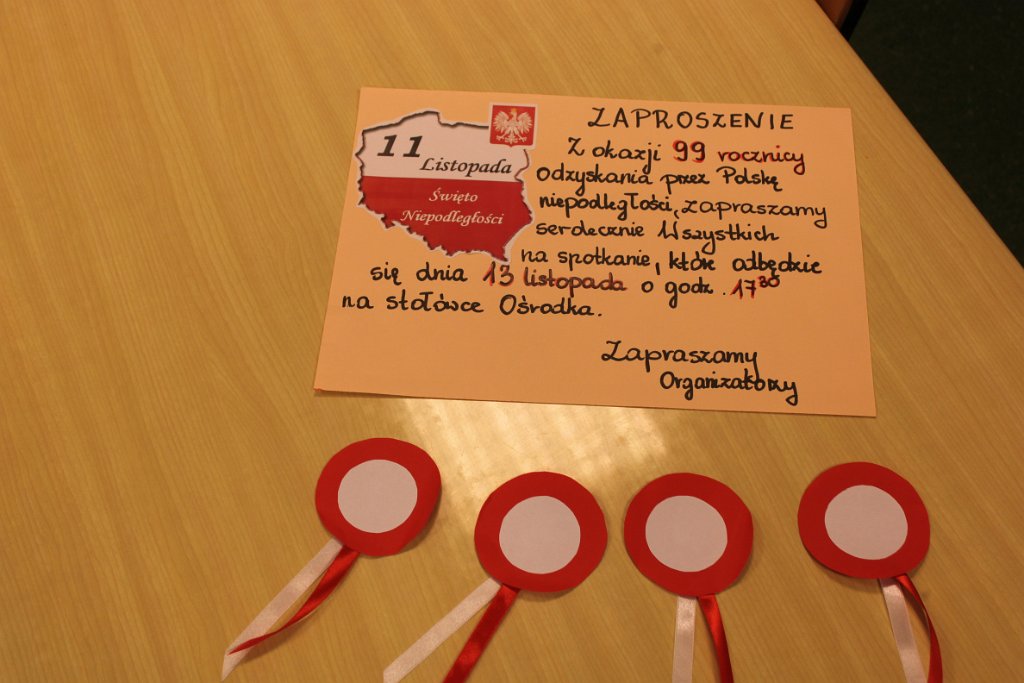 11
Listopada
Święto
Niepodległości
ZAPROSZENIE
Z okazji 99 rocznicy
Odzyskania przez Polskę
niepodległości, zapraszamy
serdecznie Wszystkich
na spotkanie, które odbędzie
się dnia 13 listopada o godz. 17³⁰
na stołówce Ośrodka.
Zapraszamy
Organizatorzy